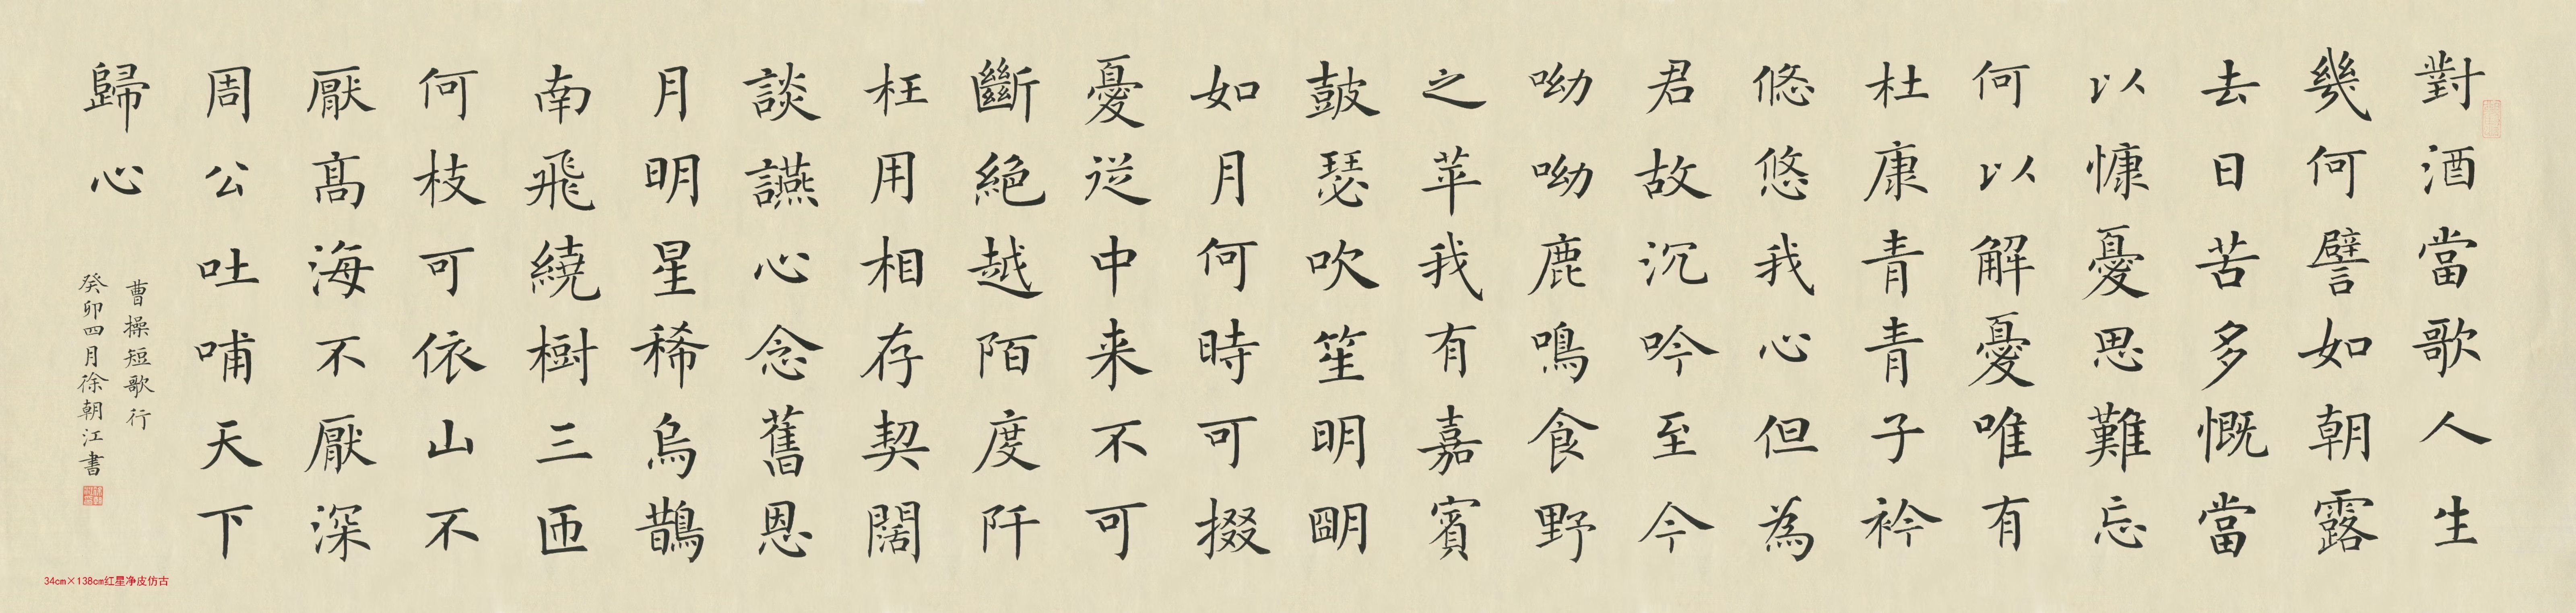 對酒當歌人生
幾何譬如朝露
去日苦多慨當
以慷憂思難忘
何以解憂唯有
杜康青青子衿
悠悠我心但為
君故沉吟至今
呦呦鹿鳴食野
之苹我有嘉賓
鼓瑟吹笙明明
如月何時可掇
憂從中来不可
斷絕越陌度阡
枉用相存契闊
談讌心念舊恩
月明星稀烏鵲
南飛繞樹三匝
何枝可依山不
厭高海不厭深
周公吐哺天下
歸心
曹操短歌行
癸卯四月徐朝江書
34cm×138cm红星净皮仿古